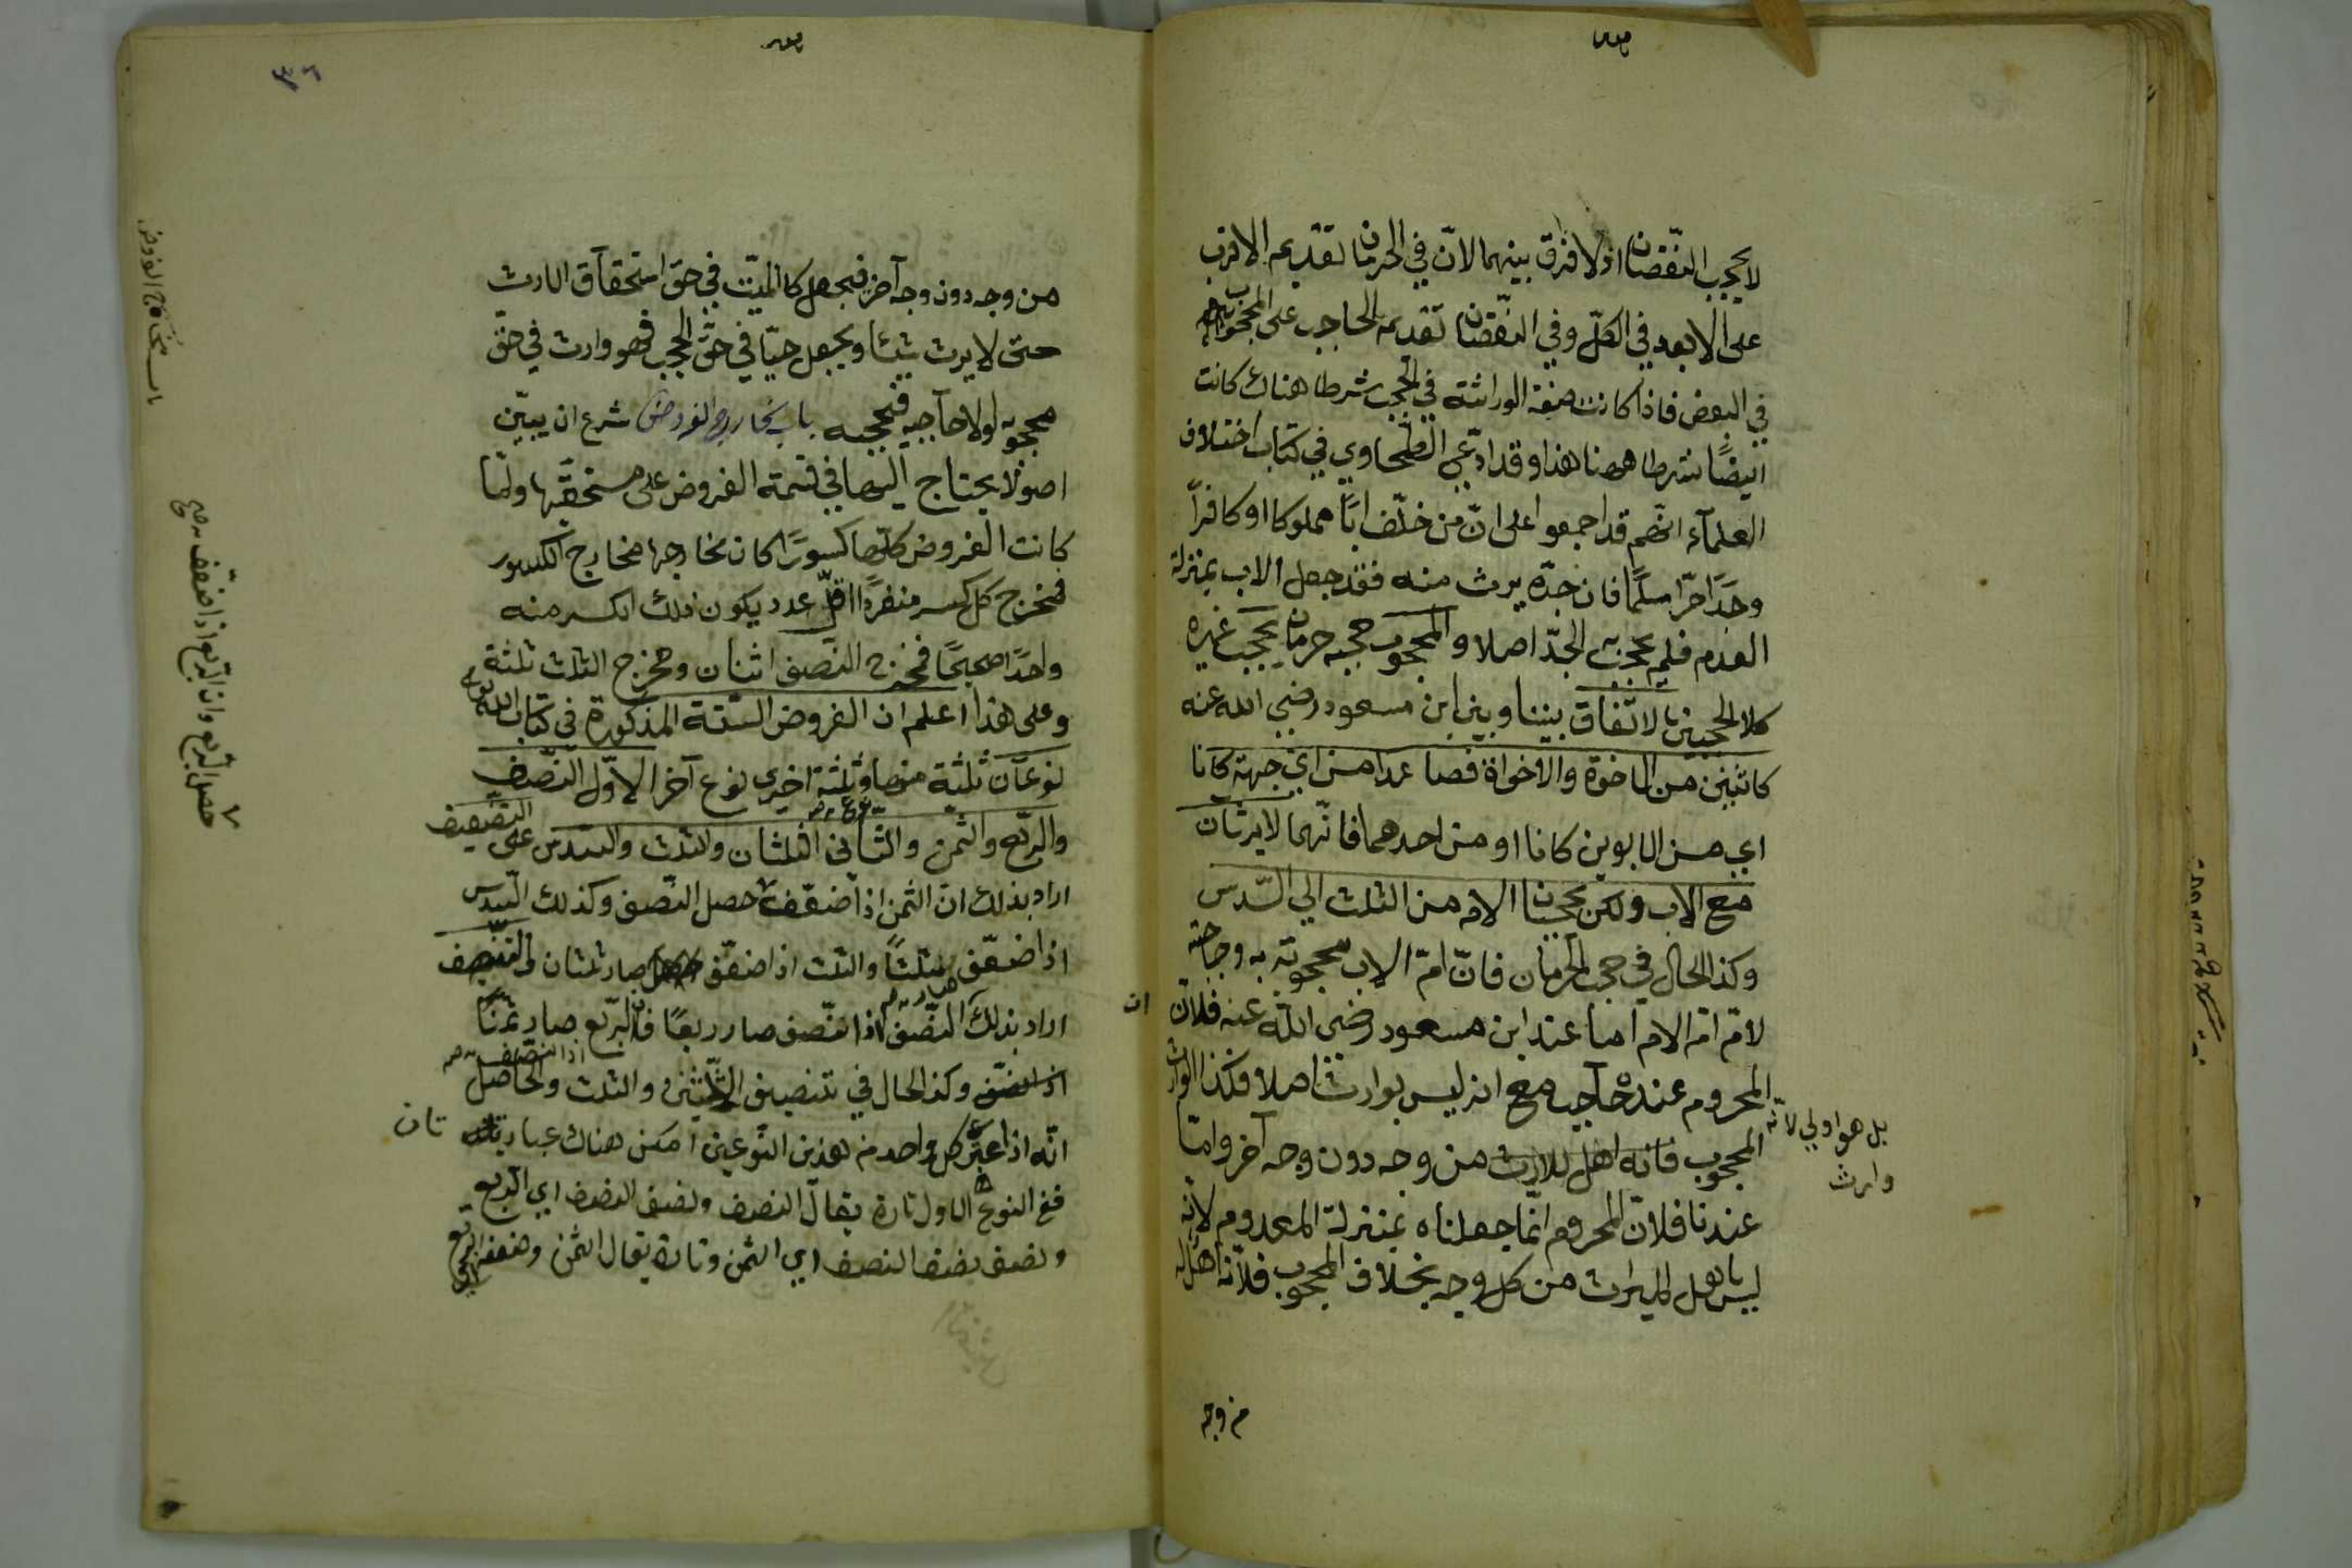 لا يحجب النّقصان اذ لا فرق بينهما لانّ في الحرمان تقديم الاقرب
على الابعد في الكلّ وفي النّقصان تقديم الحاجب على المحجوب
في البعض فاذا كانت صفة الوراثة في الحجب شرطا هناك كانت
ايضًا شرطا ههنا هذا وقد ادّعى الطّحاوي في كتاب اختلاف
العلمآء انّهم قد اجمعوا على انّ من خلّف ابًا مملوكا او كافرًا
وجَدًا حرًّا مسلمًا فان جدّه يرث منه فقد جعل الاب بمنزلة
العدم فلم يحجب الجدّ اصلا والمحجوب حجب حرمان يحجب غيره
كلا الحجبين بالاتّفاق بيننا وبين ابن مسعود رضي الله عنه
كاثنين من الاخوة والاخوات فصاعدا من اي جهة كانا
اي من الابوين كانا او من احدهما فانّهما لا يرثان
مع الاب ولكن يحجبان الام من الثلث الي السّدس
وكذا الحال في حجب الحرمان فانّ امّ الاب محجوبة به وحاجبة
لامّ امّ الام اما عند ابن مسعود رضي اللّه عنه فلانّ
المحروم عنده حاجب مع انه ليس بوارث اصلا فكذا الوارث
بل هو اولي لانّه
وارث
المحجوب فانه اهل للارث من وجه دون وجه آخر وامّا
عندنا فلانّ المحروم انّما جعلناه بمنزلة المعدوم لانّه
ليس باهل للميراث من كل وجه بخلاف المحجوب فلانّه اهل له
من وجه
٣٦
من وجه دون وجه آخر فيجعل كالميّت في حقّ استحقاق الارث
حتى لا يرث شيئا ويجعل حيّا في حقّ الحجب فهو وارث في حقّ
محجوبه لولا حاجبه فيحجبه باب مخارج الفروض شرع ان يبيّن
اصولا يحتاج اليها في قسمة الفروض على مستحقّيها ولمّا
كانت الفروض كلّها كسورًا كان مخارجها مخارج الكسور
فمخرج كل كسر منفردًا اقلّ عدد يكون ذلك الكسر منه
واحدًا صحيحًا فمخرج النصف اثنان ومخرج الثلث ثلثة
وعلى هذا اعلم ان الفروض الستّة المذكورة في كتاب الله
نوعان ثلثة منها نوع وثلثة اخرى نوع آخر الاوّل النّصف
والربع والثمن والثاني الثلثان والثلث والسّدس على التضعيف
اراد بذلك انّ الثمن اذا ضعّف حصل الربع وان الربع اذا ضعّف حصل النّصف وكذلك السّدس
اذا ضعّف صار ثلثًا والثلث اذا ضعّف صار ثلثان والتنصيف
اراد بذلك النّصف اذا نصّف صار ربعًا فان الربع صار ثمنًا
اذا نصّف وكذا الحال في تنصيف الثلثين والثلث والحاصل
انّه اذا عبّر عن كل واحد من هذين النّوعين امكن هناك عبارتان
ففي النوع الاول تارة يقال النصف ونصف النصف اي الربع
ونصف نصف النصف اي الثمن وتارة يقال الثمن وضعفه الربع